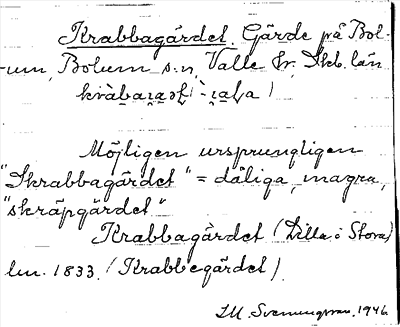 Krabbagärdet. Gärde på Bol-
um, Bolum s:n, Valle hr. Skb. län
Möjligen ursprungligen
"Skrabbagärdet" = dåliga, magra,
"skräpgärdet"
Krabbagärdet (Lilla o Stora)
lm. 1833. (Krabbegärdet).
1946.